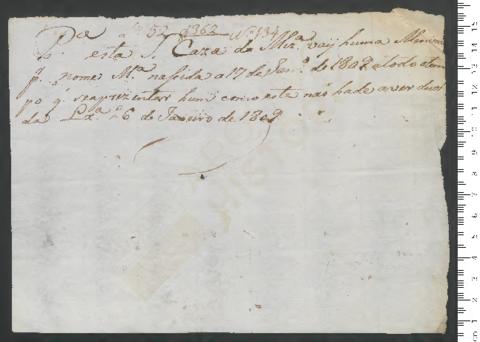 a f 52 1362 Nº 134
Pª esta S. Caza da Mizª. vay huma Menina
pʳ. nome Mª. nascida a 17 de Janrº. de 1802 e todo o tem
po q̃ reaprezentar hum como este não hade aver duvi
da Lxª. 26 de Janeiro de 1802